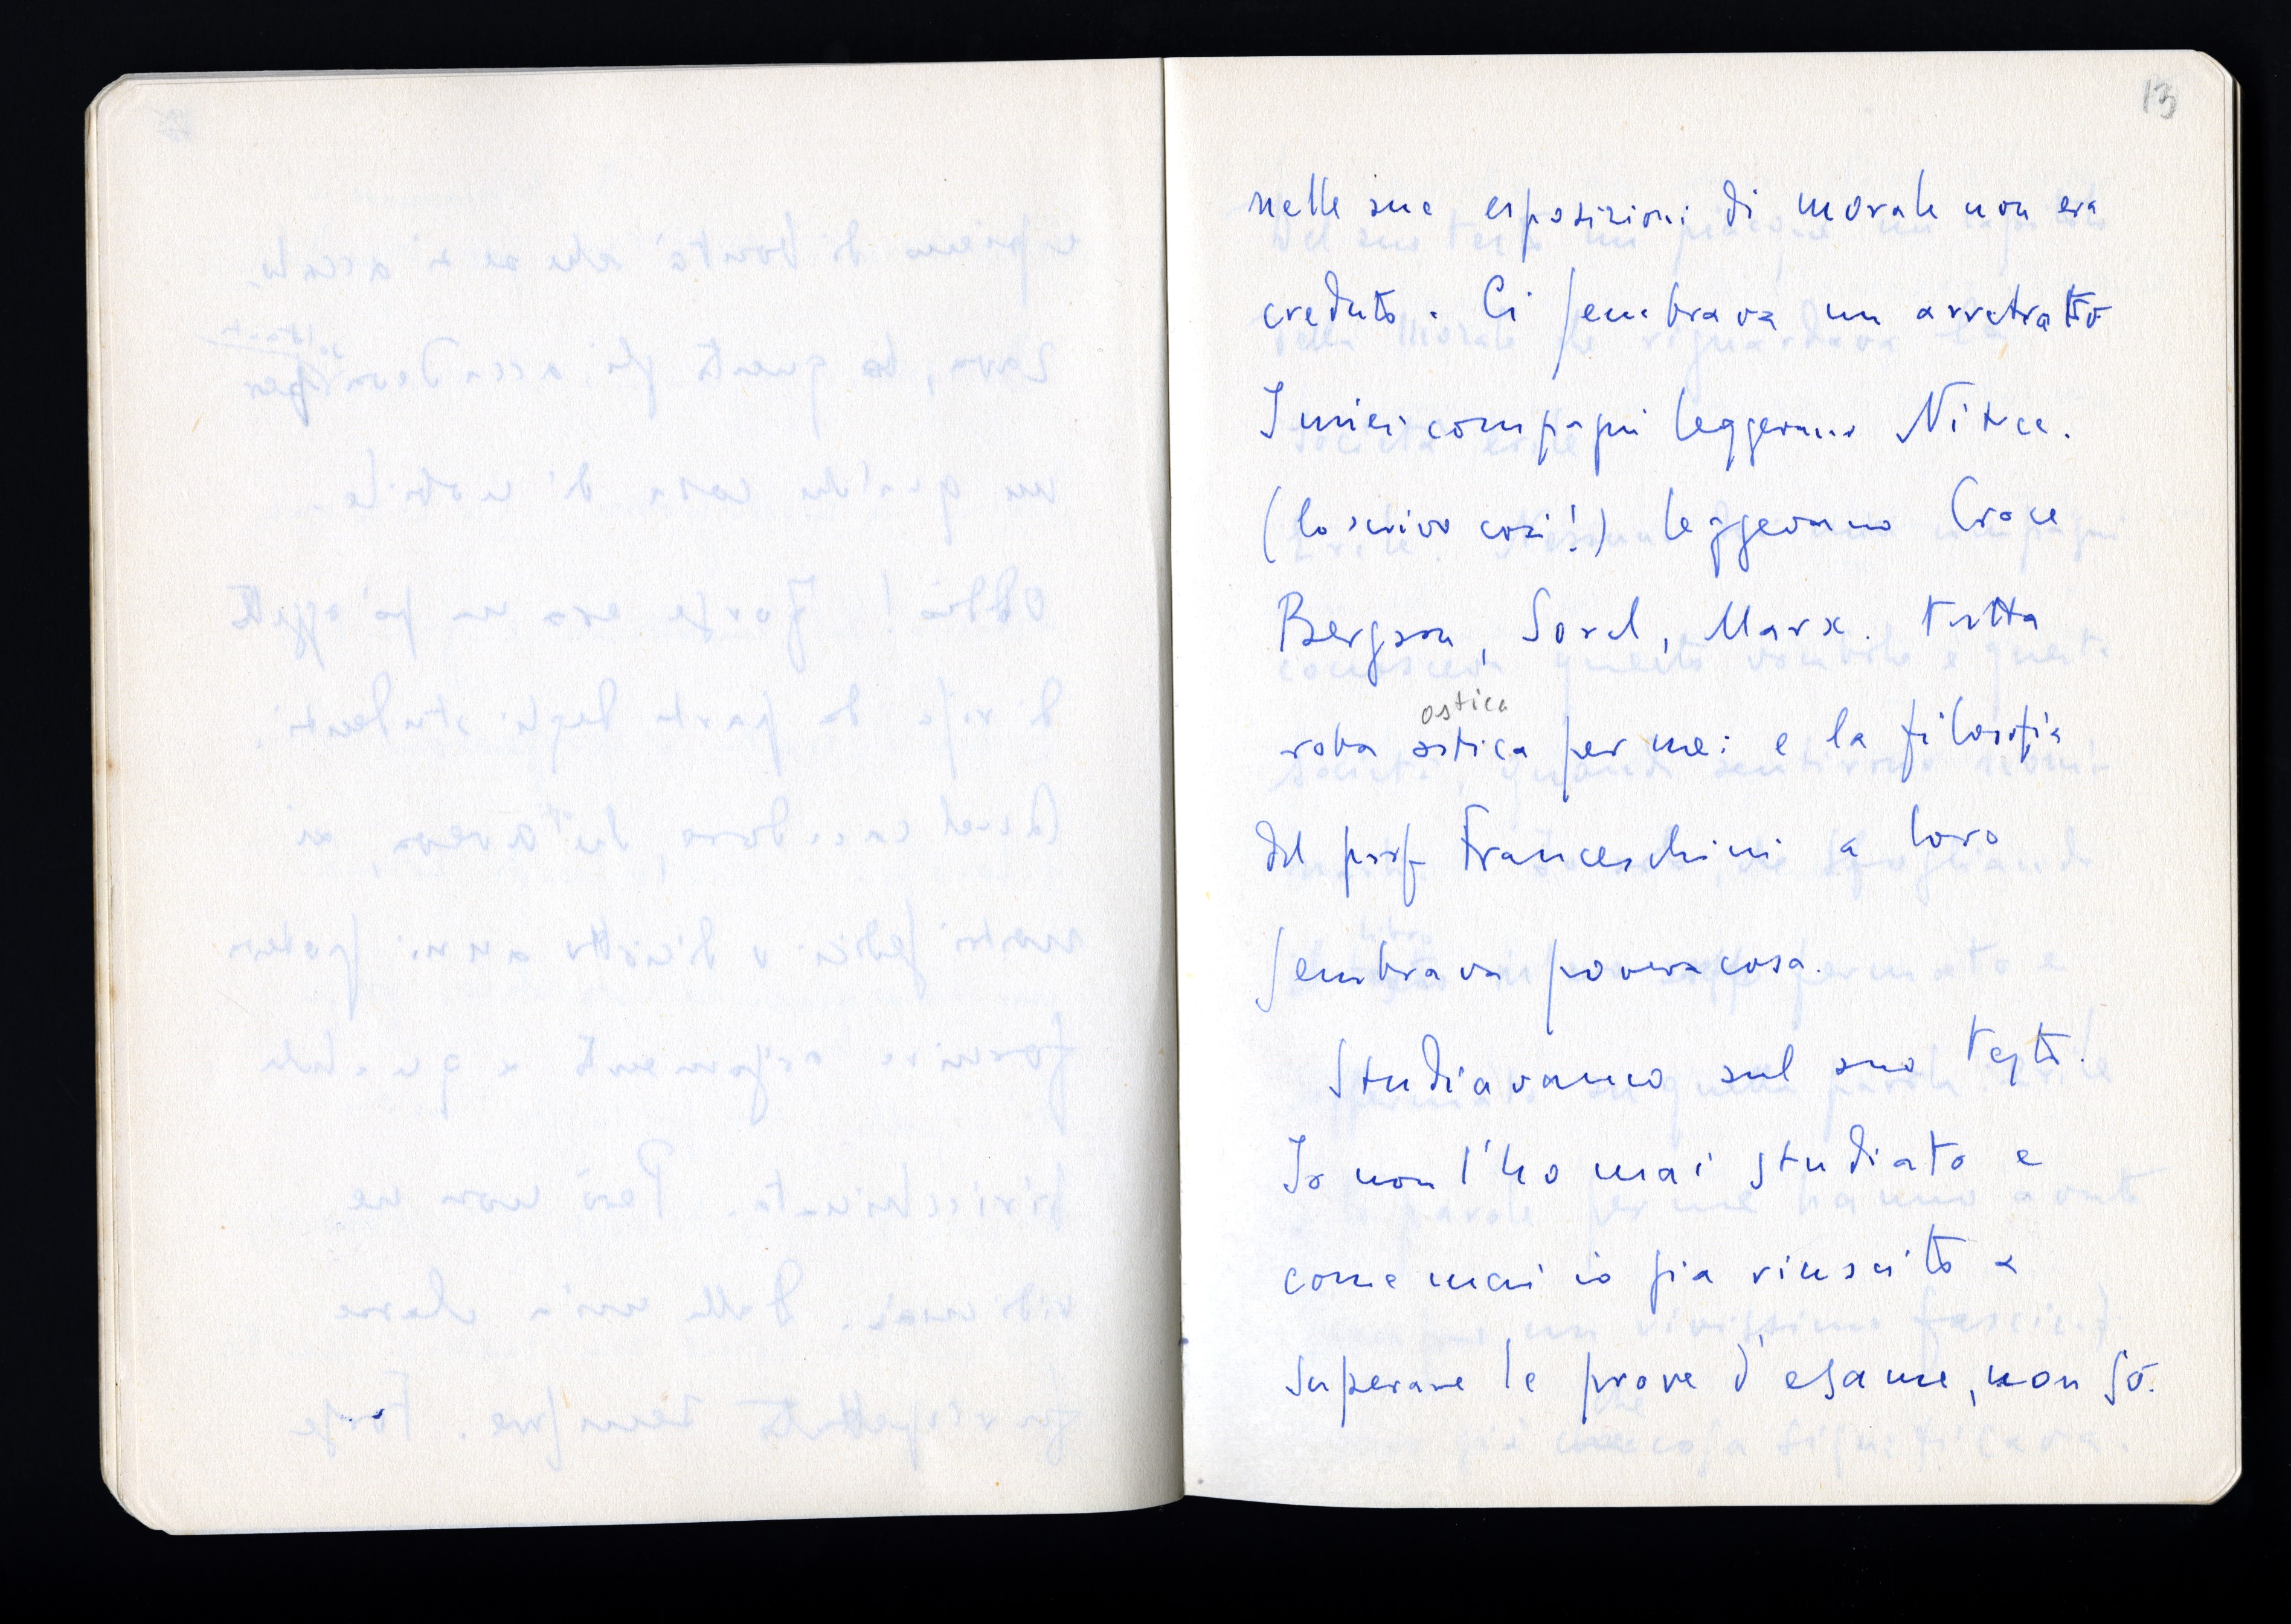 13
nelle sue esposizioni di morale non era
creduto. Ci sembrava un arretrato
I miei compagni leggevano Nitce.
(lo scrivo così!) leggevano Croce
Bergson, Sorel, Marx. tutta
ostica
roba ostica per me: e la filosofia
del prof Franceschini a loro
sembrava povera cosa.
Studiavamo sul suo testo.
Io non l'ho mai studiato e
come mai io sia riuscito a
superare le prove d'esame, non so.